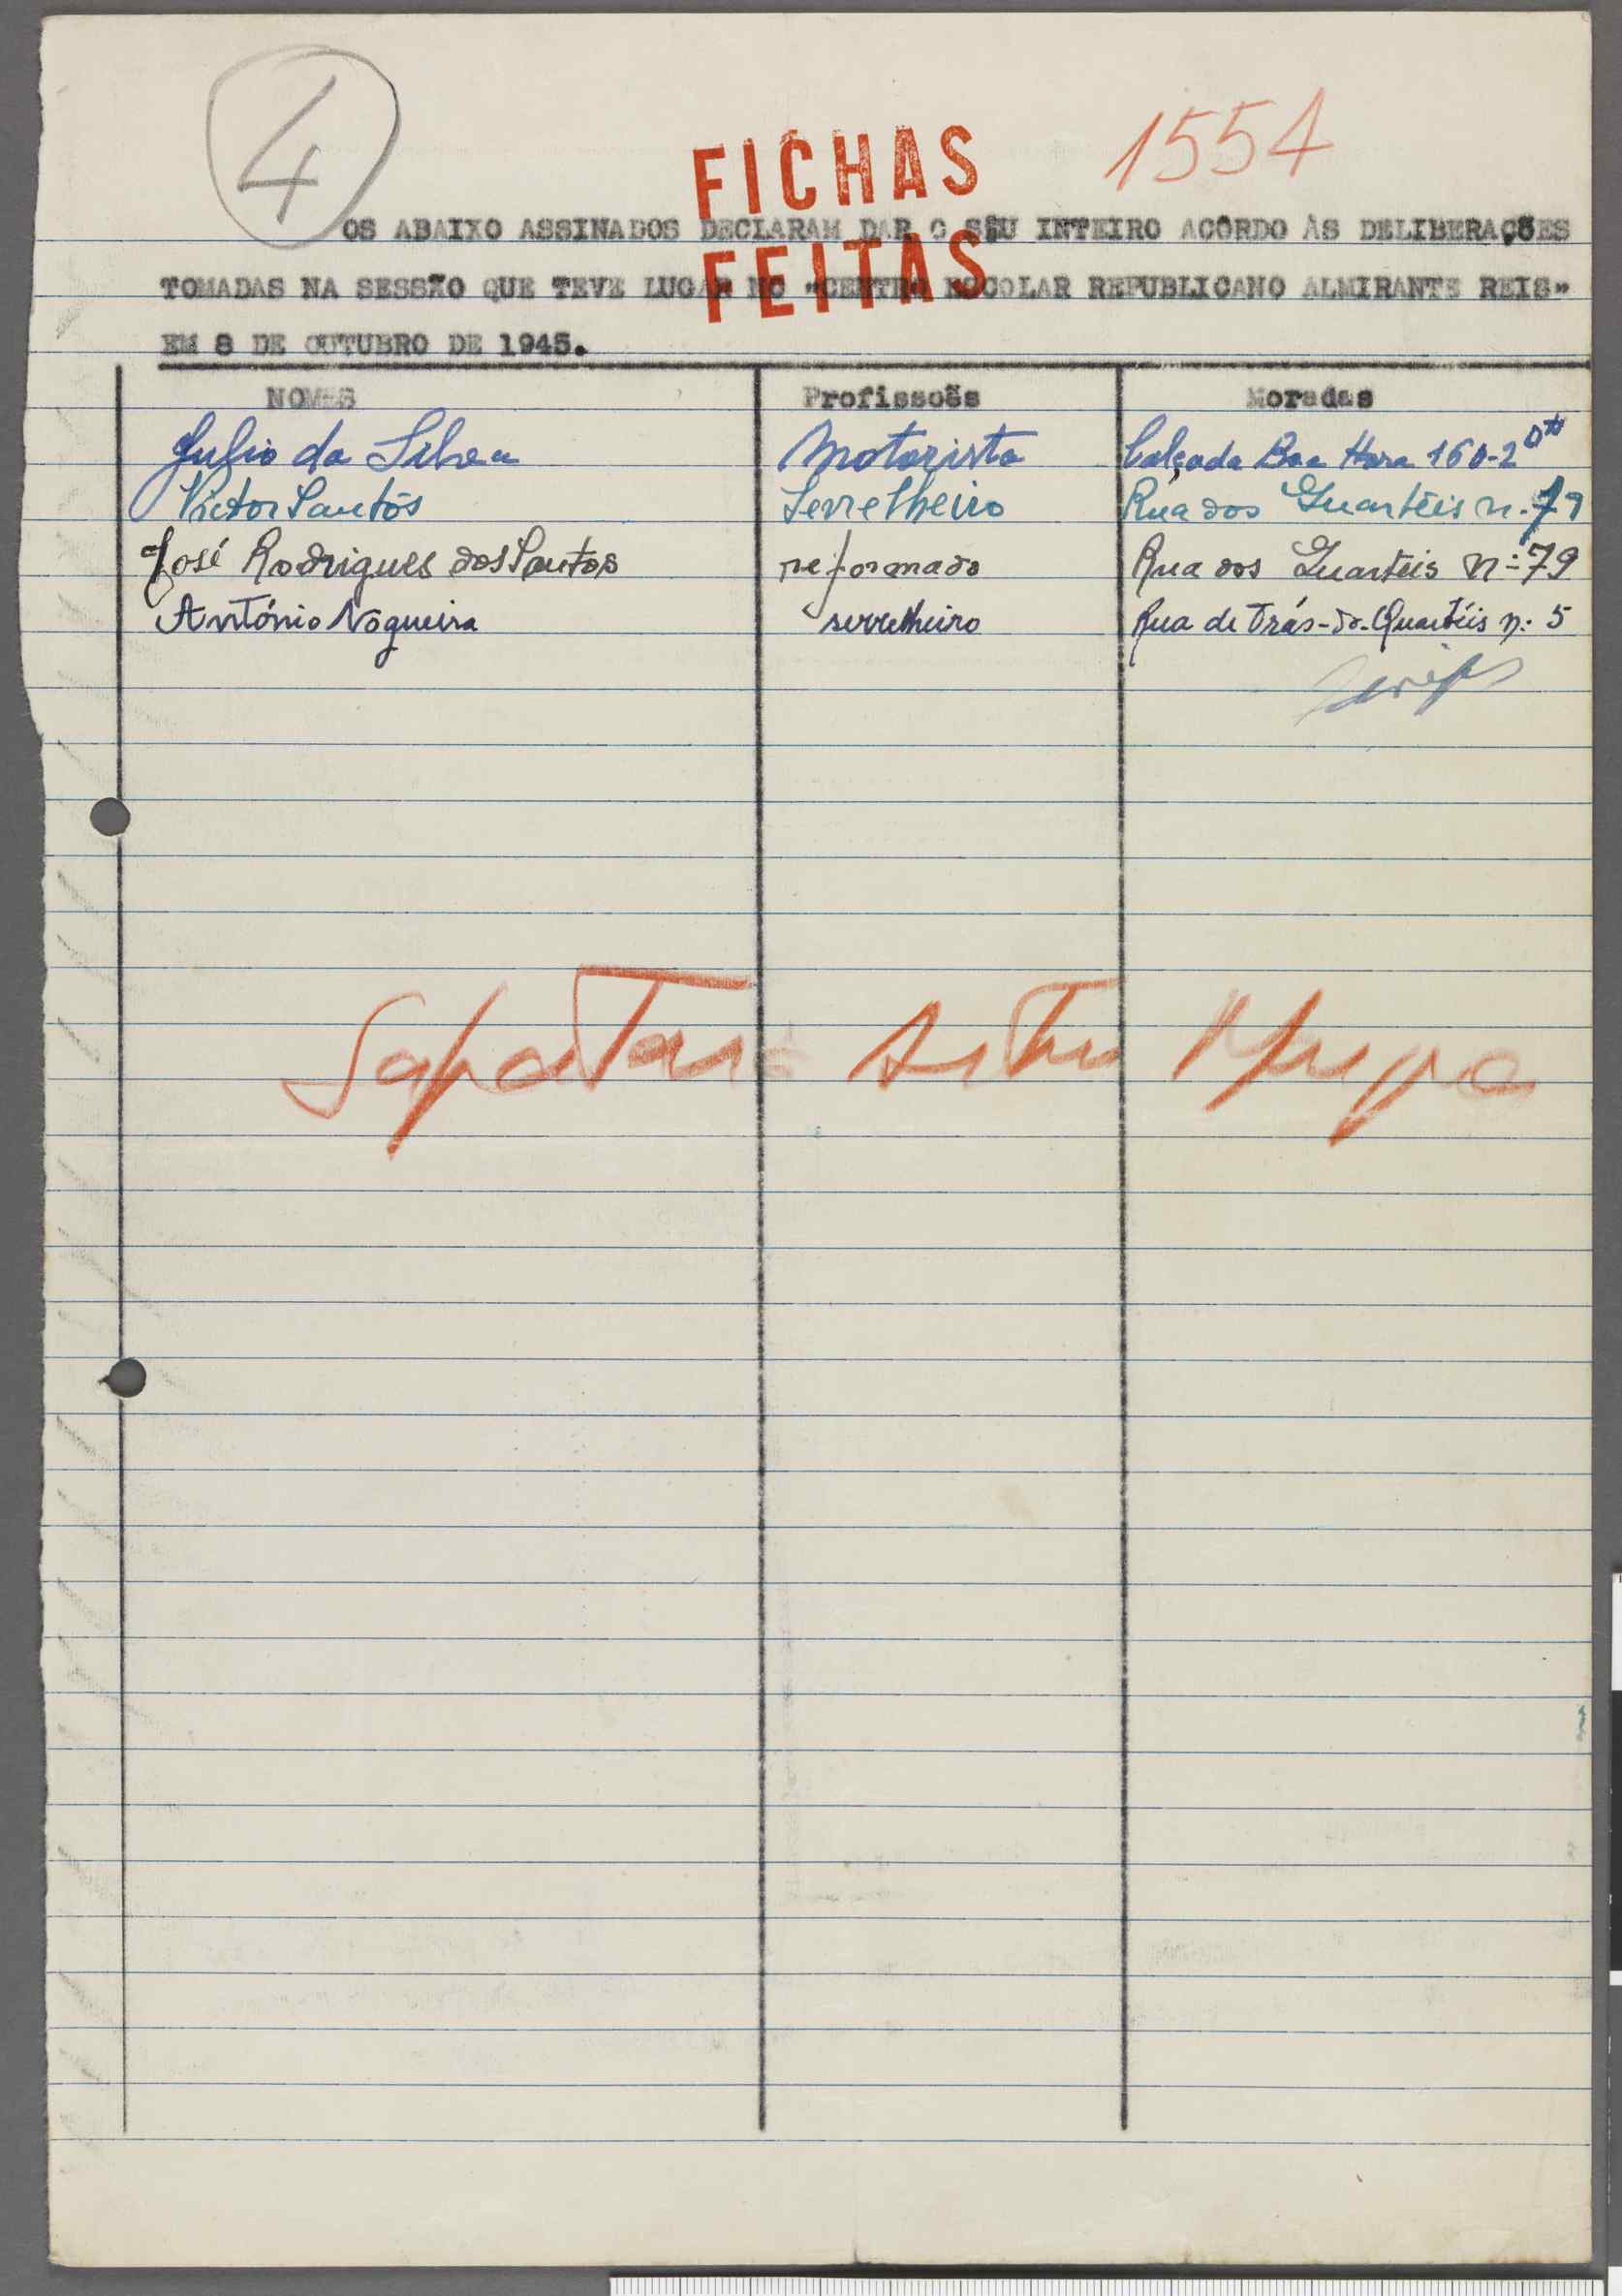 4
1554
FICHAS
FEITAS
OS ABAIXO ASSINADOS DECLARAM DAR O SEU INTEIRO ACÔRDO ÀS DELIBERAÇÕES
TOMADAS NA SESSÃO QUE TEVE LUGAR NO "CENTRO ESCOLAR REPUBLICANO ALMIRANTE REIS"
EM 8 DE OUTUBRO DE 1945.
NOMES Profissoēs Moradas
Julio da Silva Motorista Calçada Boa Hora 160-2º Dto
Victor Santos Serrelheiro Rua dos Quartéis n. 79
José Rodrigues dos Santos reformado Rua dos Quartéis nº 79
António Nogueira serrelheiro Rua de Trás-do-Quartéis n. 5
Sapataria Artur